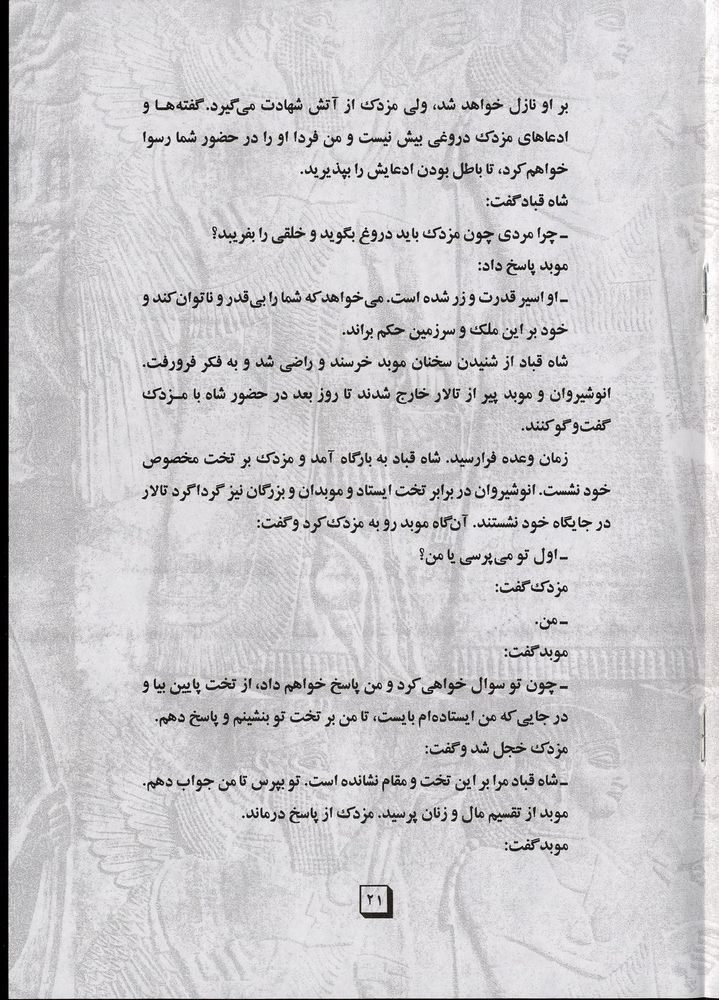 بر او نازل خواهد شد، ولی مزدک از آتش شهادت می‌گیرد. گفته‌هـا و
ادعاهای مزدک دروغی بیش نیست و من فردا او را در حضور شما رسوا
خواهم کرد، تا باطل بودن ادعایش را بپذیرید.
شاه قباد گفت:
ـ چرا مردی چون مزدک باید دروغ بگوید و خلقی را بفریبد؟
موبد پاسخ داد:
ـ او اسیر قدرت و زر شده است. می‌خواهد که شما را بی‌قدر و ناتوان کند و
خود بر این ملک و سرزمین حکم براند.
شاه قباد از شنیدن سخنان موبد خرسند و راضی شد و به فکر فرورفت.
انوشیروان و موبد پیر از تالار خارج شدند تا روز بعد در حضور شاه با مـزدک
گفت‌وگو کنند.
زمان وعده فرارسید. شاه قباد به بارگاه آمد و مزدک بر تخت مخصوص
خود نشست. انوشیروان در برابر تخت ایستاد و موبدان و بزرگان نیز گرداگرد تالار
در جایگاه خود نشستند. آن‌گاه موبد رو به مزدک کرد و گفت:
ـ اول تو می‌پرسی یا من؟
مزدک گفت:
ـ من.
موبد گفت:
ـ چون تو سوال خواهی کرد و من پاسخ خواهم داد، از تخت پایین بیا و
در جایی که من ایستاده‌ام بایست، تا من بر تخت تو بنشینم و پاسخ دهم.
مزدک خجل شد و گفت:
ـ شاه قباد مرا بر این تخت و مقام نشانده است. تو بپرس تا من جواب دهم.
موبد از تقسیم مال و زنان پرسید. مزدک از پاسخ درماند.
موبد گفت:
۲۱